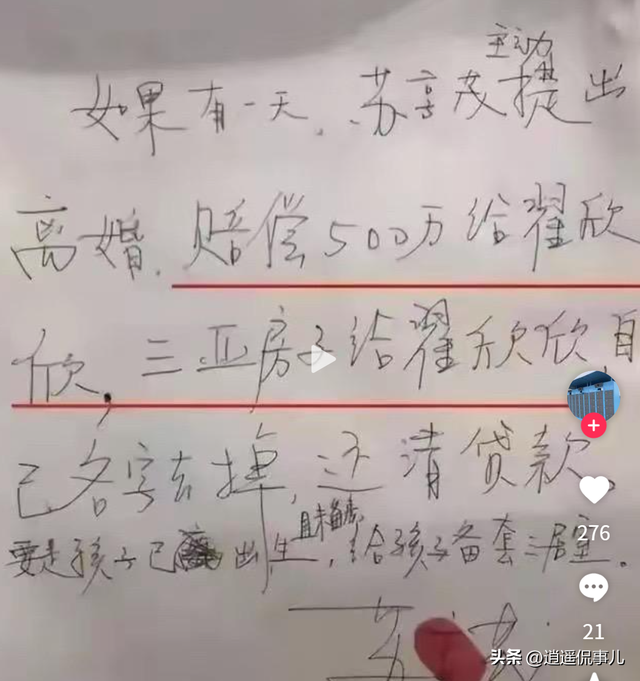 主动
如果有一天，苏享茂提出
离婚，赔偿500万给翟欣
欣，三亚房子给翟欣欣自
己名字去掉，还清贷款。
要是孩子已出生，给孩子备套三居室。
276
21
头条 @逍遥侃事儿